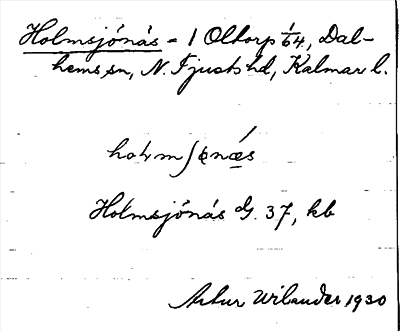 Holmsjönäs = 1 Oltorp 1/64, Dal-
hems sn, N. Tjusts hd, Kalmar l.
Holmsjönäs G. 37, kb
Artur Wilander 1930